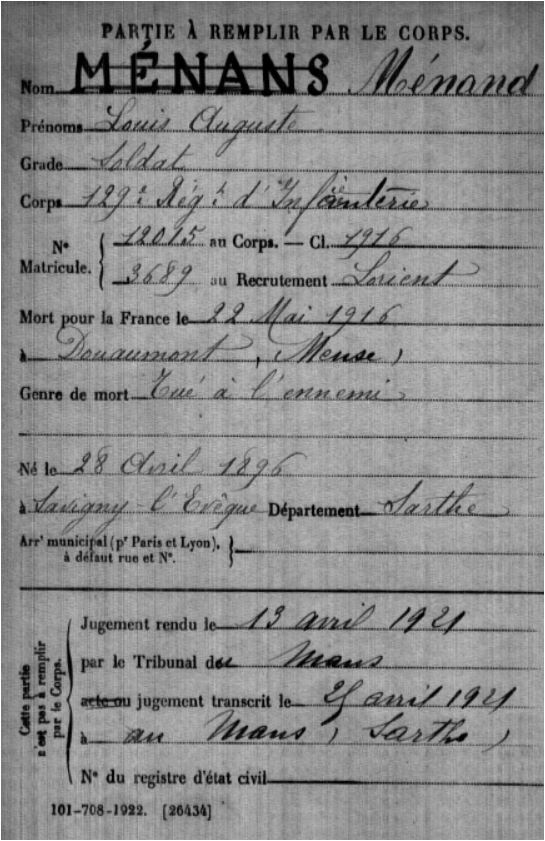 PARTIE À REMPLIR PAR LE CORPS.
Nom MÉNANS Ménand
Prénoms Louis Auguste
Grade Soldat
Corps 129e Régt d'Infanterie
Nº Matricule. { 12015 au Corps. — Cl. 1916
3689 au Recrutement Lorient
Mort pour la France le 22 Mai 1916
à Douaumont (Meuse)
Genre de mort Tué à l'ennemi
Né le 28 Avril 1896
à Savigny l'Evêque Département Sarthe
Arrt municipal (pr Paris et Lyon), à défaut rue et Nº. }
Cette partie n'est pas à remplir par le Corps. {
Jugement rendu le 13 avril 1921
par le Tribunal du Mans
acte ou jugement transcrit le avril 1921
à au Mans (Sarthe)
Nº du registre d'état civil
101-708-1922. [26434]